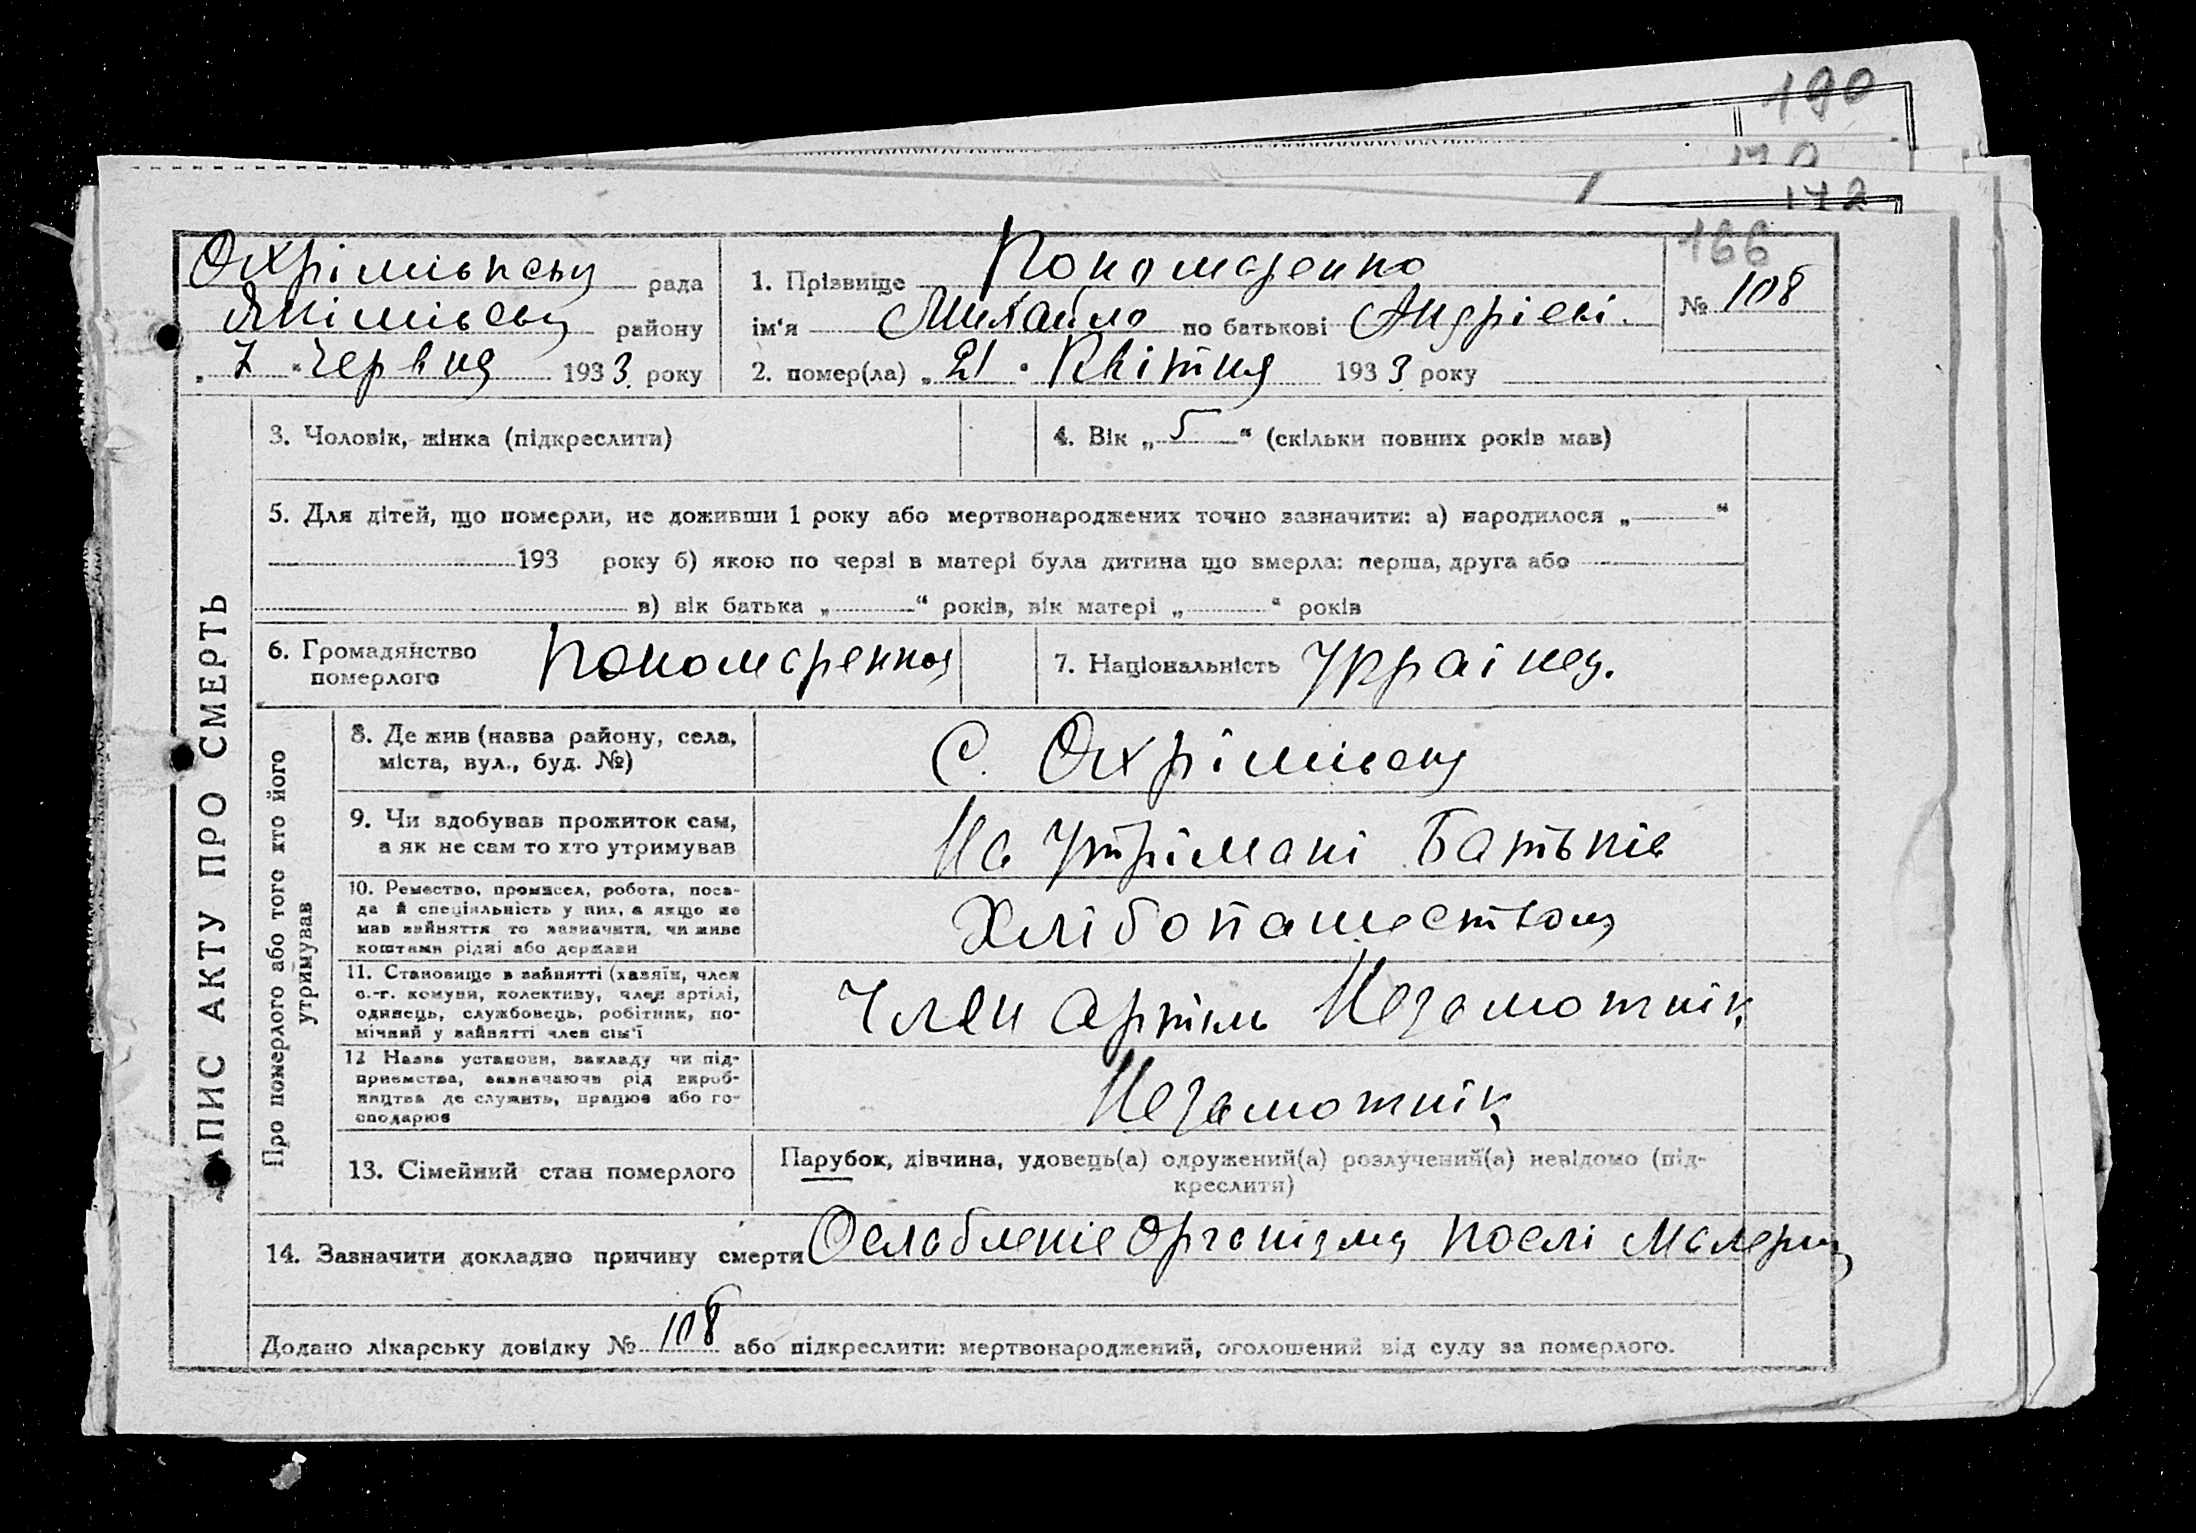 190
172
166
Охрімівську рада
Якімівську району
„ 7 “ Червня 1933 року
1. Прізвище Пономаренко
№ 108
ім‘я Михайло по батькові Андрієві.
2. помер(ла) „ 21 “ Квітня 1933 року
ЗАПИС АКТУ ПРО СМЕРТЬ
3. Чоловік, жінка (підкреслити)
4. Вік „ 5 “ (скільки повних років мав)
5. Для дітей, що померли, не доживши 1 року або мертвонароджених точно зазначити: а) народилося „ “
193 року б) якою по черзі в матері була дитина що вмерла: перша, друга або
в) вік батька „ “ років, вік матері „ “ років
6. Громадянство Пономаренко
померлого
7. Національність Українец.
Про померлого або того хто його
утримував
8. Де жив (назва району, села,
міста, вул., буд. №)
С. Охрімівську
9. Чи здобував прожиток сам,
а як не сам то хто утримував
На утрімані Батьків
10. Ремество, промисел, робота, поса-
да й спеціяльність у них, а якщо не
мав зайняття то зазначити, чи живе
коштами рідні або держави
Хлібопашеством
11. Становище в зайнятті (хазяїн, член
с.-г. комуни, колективу, член артілі,
одинець, службовець, робітник, по-
мічний у зайнятті член сім‘ї
Член артіль Незаможнік
12 Назва установи, закладу чи під-
приємства, зазначаючи рід вироб-
ництва де служить, працює або го-
сподарює
Незаможнік
13. Сімейний стан померлого
Парубок, дівчина, удовець(а) одружений(а) розлучений(а) невідомо (під-
креслити)
14. Зазначити докладно причину смерти Ослабленіе Організма послі Малериі
Додано лікарську довідку № 108 або підкреслити: мертвонароджений, оголошений від суду за померлого.